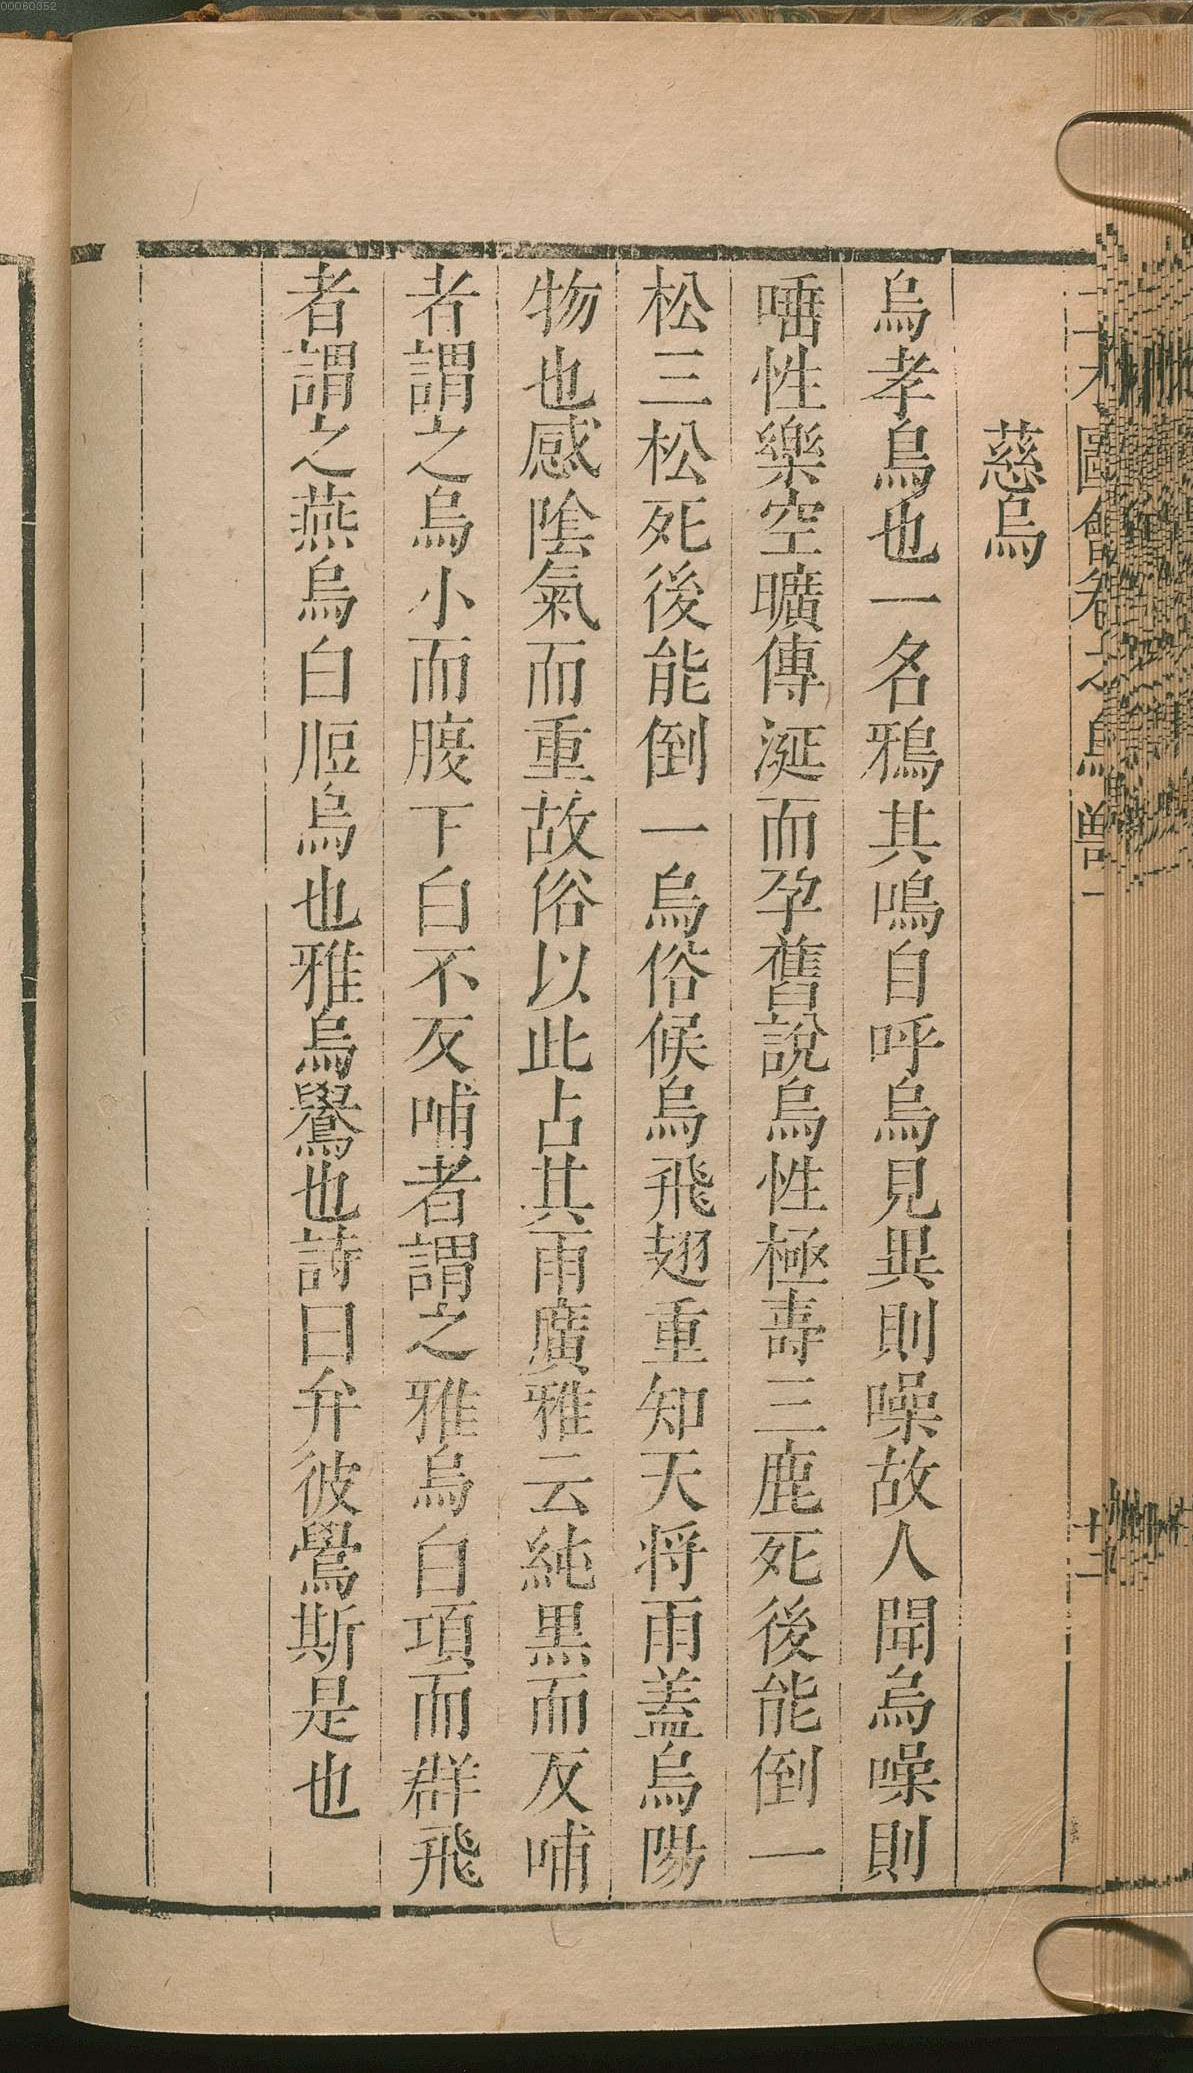 00060352
三才圖會卷之鳥獸一
十二
慈烏
烏孝鳥也一名鴉其鳴自呼烏見異則噪故人聞烏噪則
唾性樂空曠傳涎而孕舊說烏性極壽三鹿死後能倒一
松三松死後能倒一烏俗候烏飛翅重知天将雨蓋烏陽
物也感陰氣而重故俗以此占其雨廣雅云純黒而反哺
者謂之烏小而腹下白不反哺者謂之雅烏白項而群飛
者謂之燕烏白脰烏也雅烏鸒也詩曰弁彼鸒斯是也